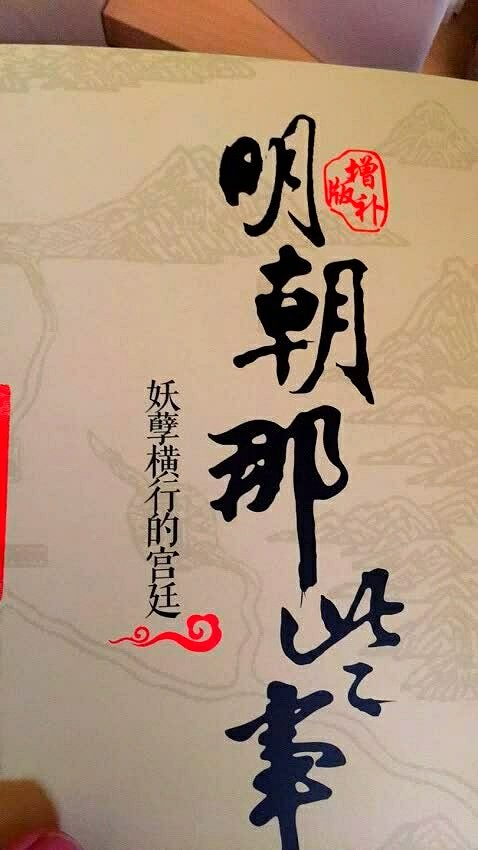 明朝那些事
增补版
妖孽横行的宫廷